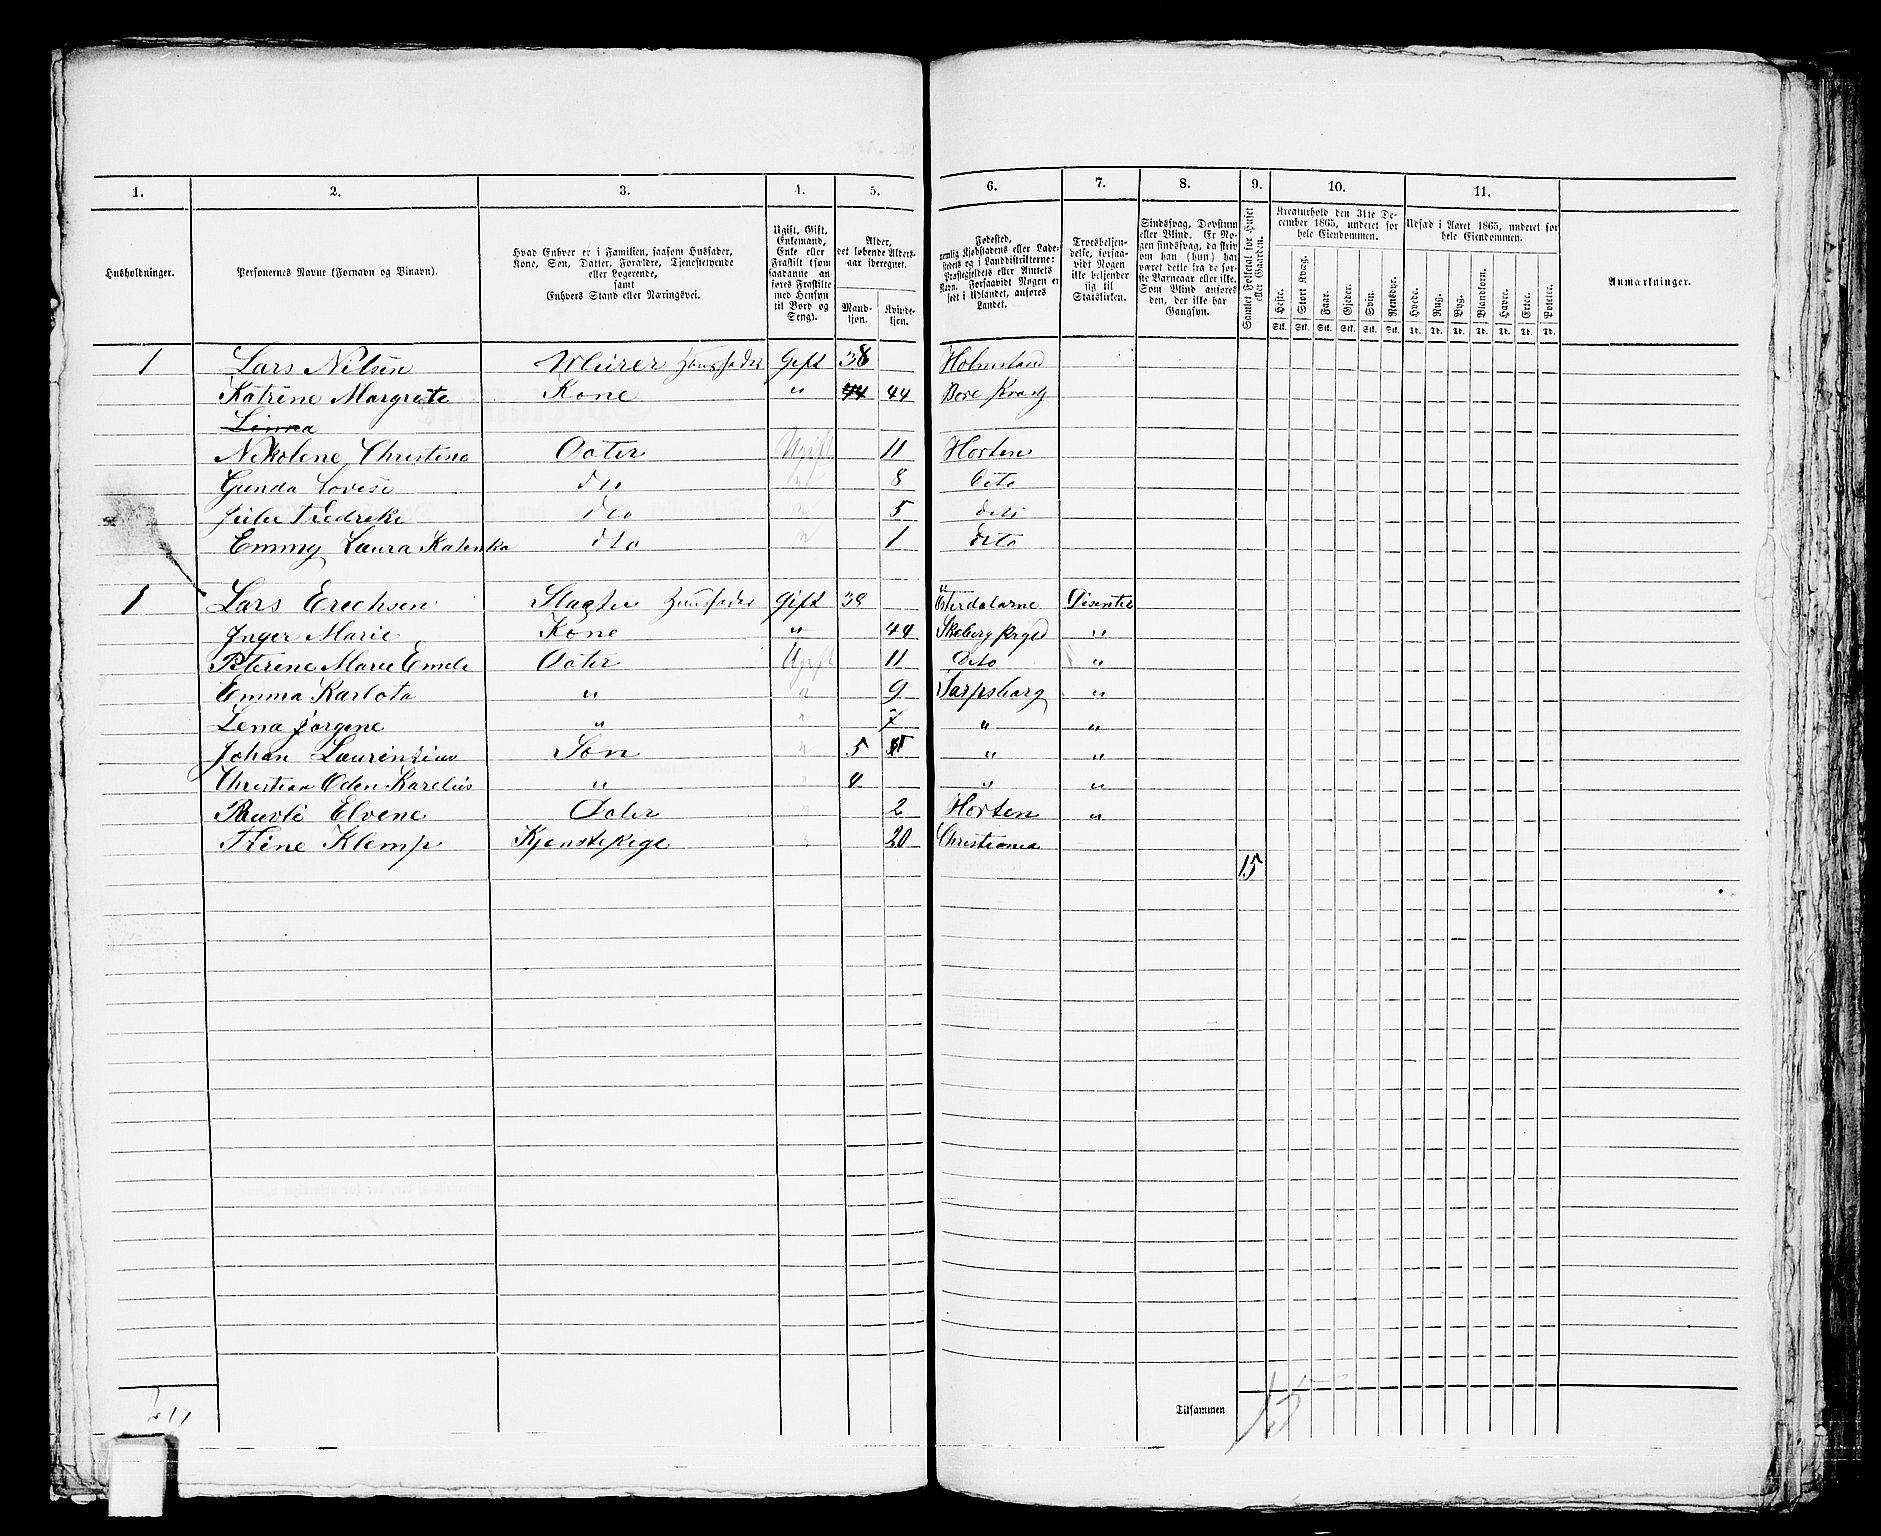 1. 2. 3. 4. 5. 6. 7. 8. 9. 10. 11.
Husholdninger.
Personernes Navne (Fornavn og Tilnavn).
Hvad Enhver er i Familien, saasom Husfader,
Kone, Søn, Datter, Forældre, Tjenestetyende
eller Logerende,
samt
Enhvers Stand eller Næringsvei.
Ugift, Gift,
Enkemand,
Enke eller
Fraskilt (som
saadanne an-
føres Fraskilte
med Hensyn
til Bord og
Seng).
Alder,
det løbende Alders-
aar iberegnet.
Mand-
kjøn.
Kvinde-
kjøn.
Fødested,
nemlig Kjøbstadens eller Lade-
stedets og i Landdistrikterne:
Præstegjeldets eller Amtets
Navn. Forsaavidt Nogen er
født i Udlandet, anføres
Landet.
Troesbekjen-
delse, forsaa-
vidt Nogen
ikke bekjender
sig til
Statskirken.
Sindssvag, Døvstum
eller Blind. Er No-
gen sindssvag, da skriv
om han (hun) har
været dette fra de før-
ste Barneaar eller ikke.
Som Blind anføres
den, der ikke har
Gangsyn.
Samlet Folketal for Huset
eller Gaarden.
Kreaturhold den 31te De-
cember 1865, underet for
hele Eiendommen.
Heste. Stort Kvæg. Faar. Gjeder. Svin. Rensdyr.
Stk. Stk. Stk. Stk. Stk. Stk.
Udsæd i Aaret 1865, underet for
hele Eiendommen.
Hvede. Rug. Byg. Blandkorn. Havre. Erter. Poteter.
Td. Td. Td. Td. Td. Td. Td.
Anmærkninger.
1 Lars Nilsen Murer Huusfader Gift 38 Holmstad
Katrine Margrete Kone " 44 44 Bore
Linna
Nikolene Christina Dater Ugift 11 Horten
Gunda Lovise dto " 8 Dito
Julie Fredreke dto " 5 dito
Emmy Laura Katinka dto " 1 dito
1 Lars Erechsen Slagter Huusfader Gift 39 Østerdalarne Disenter
Inger Marie Kone " 44 Skeberg Prgld "
Peterene Marie Emele Dater Ugift 11 Dito "
Emma Karlota " " 9 Sarpsborg "
Lena Jorgine " " 7 " "
Johan Laurinsius Søn " 5 " "
Christian Oden Karelius " " 4 " "
Elvene Dater " 2 Horten "
Trine Klemp Tjenstepige " 20 Christiania
15
Tilsammen 15